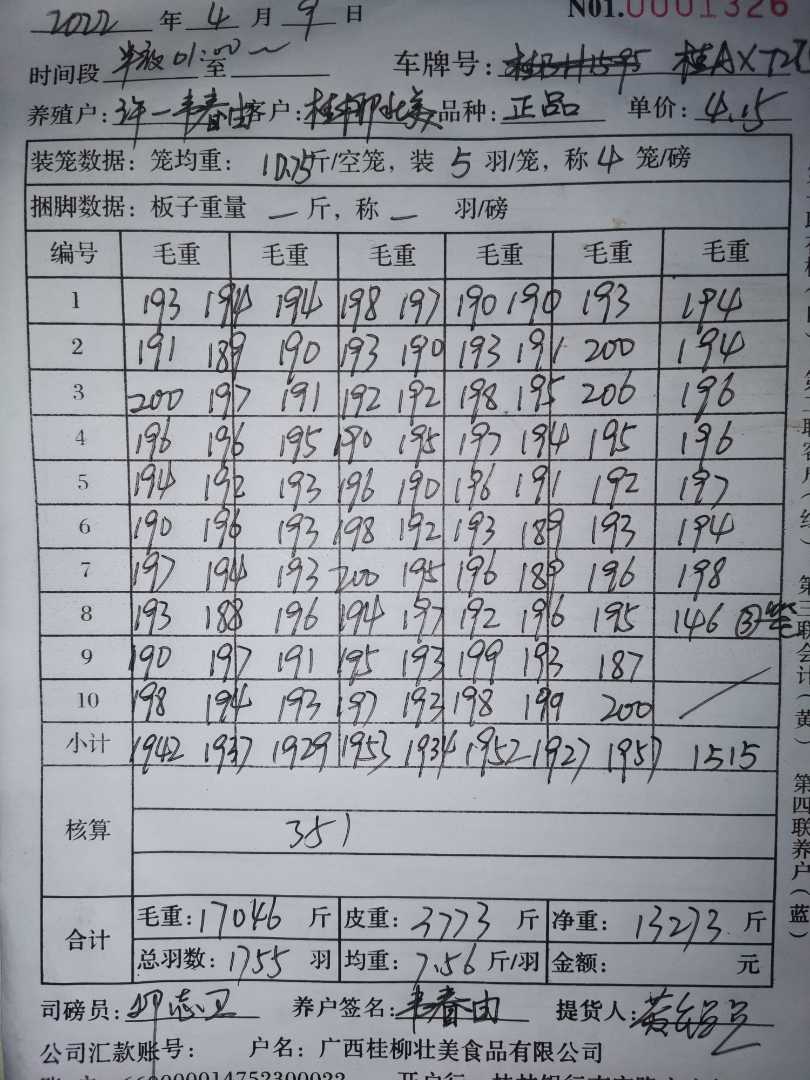 2022 年 4 月 9 日 N01.0001326
时间段 半夜 01:00 至 车牌号: 桂AX
养殖户: 许一韦春由 客户: 桂柳壮美 品种: 正品 单价: 4.15
装笼数据: 笼均重: 10.75斤/空笼, 装 5 羽/笼, 称 4 笼/磅
捆脚数据: 板子重量 — 斤, 称 — 羽/磅
编号 毛重 毛重 毛重 毛重 毛重 毛重
1 193 194 194 198 197 190 190 193 194
2 191 189 190 193 190 193 191 200 194
3 200 197 191 192 192 198 195 206 196
4 196 196 195 190 195 197 194 195 196
5 194 192 193 196 190 196 191 192 197
6 190 196 193 198 192 193 189 193 194
7 197 194 193 200 195 196 189 196 198
8 193 188 196 194 197 192 196 195 146 ③笼
9 190 197 191 195 193 199 193 187
10 198 194 193 197 193 198 199 200
小计 1942 1937 1929 1953 1934 1952 1927 1957 1515
核算 351
合计 毛重: 17046 斤 皮重: 3773 斤 净重: 13273 斤
总羽数: 1755 羽 均重: 7.56 斤/羽 金额: 元
司磅员: 志卫 养户签名: 韦春由 提货人: 黄
公司汇款账号: 户名: 广西桂柳壮美食品有限公司
第二联客户(红) 第三联会计(黄) 第四联养户(蓝)